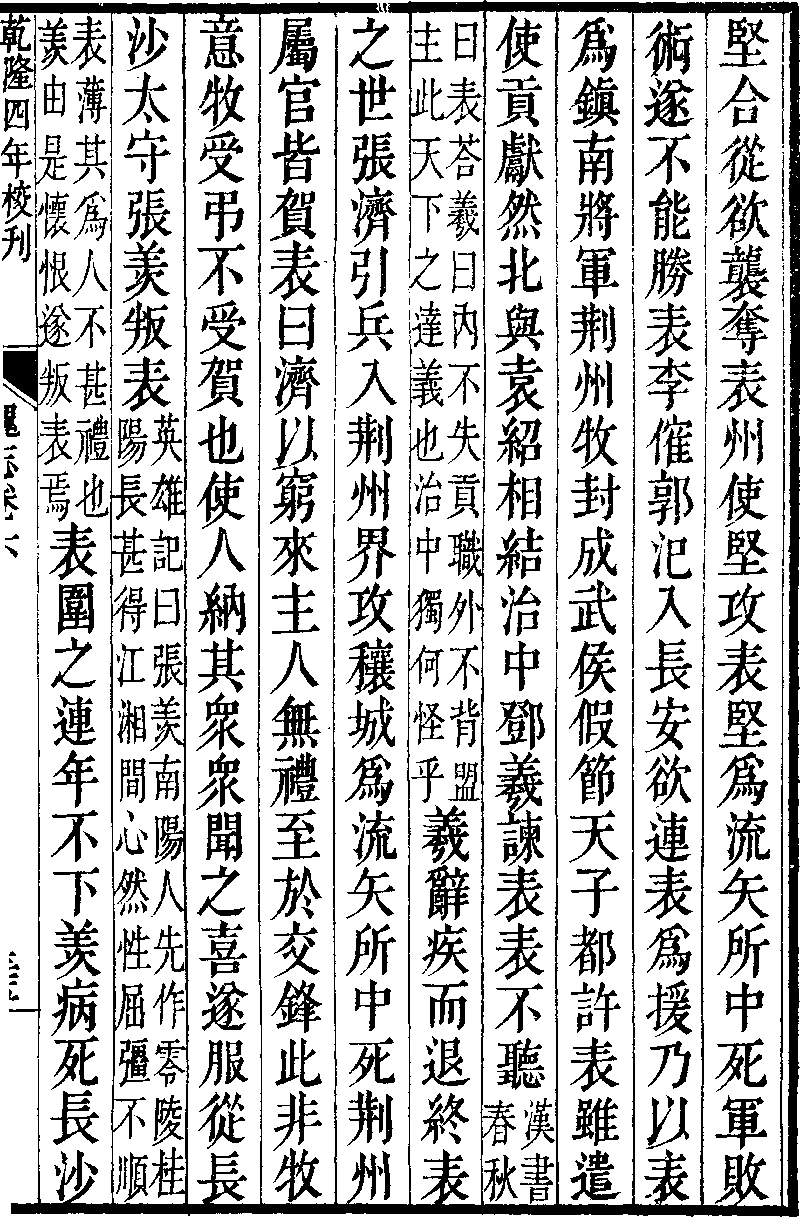 堅合從欲襲奪表州使堅攻表堅爲流矢所中死軍敗
術遂不能勝表李傕郭汜入長安欲連表爲援乃以表
爲鎮南將軍荆州牧封成武侯假節天子都許表雖遣
使貢獻然北與袁紹相結治中鄧羲諫表表不聽
漢書
春秋
曰表荅羲曰内不失貢職外不背盟
主此天下之達義也治中獨何怪乎
羲辭疾而退終表
之世張濟引兵入荆州界攻穰城爲流矢所中死荆州
屬官皆賀表曰濟以窮來主人無禮至於交鋒此非牧
意牧受弔不受賀也使人納其衆衆聞之喜遂服從長
沙太守張羨叛表
英雄記曰張羨南陽人先作零陵桂
陽長甚得江湘間心然性屈彊不順
表薄其爲人不甚禮也
羨由是懷恨遂叛表焉
表圍之連年不下羨病死長沙
乾隆四年校刊
魏志卷六